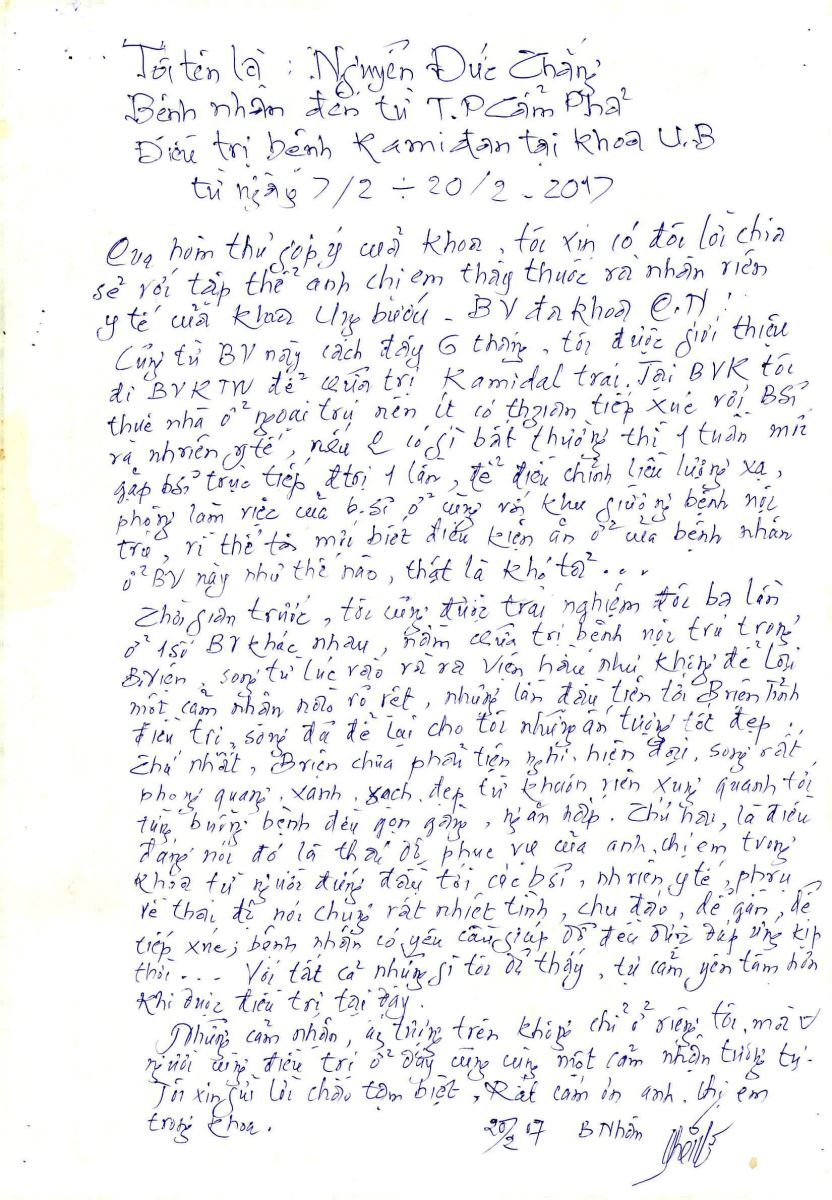 Tôi tên là : Nguyễn Đức Thắng
Bệnh nhân đến từ T.P Cẩm Phả
Điều trị bệnh Kamiđan tại khoa U.B
từ ngày 7/2 ÷ 20/2 - 2017
Qua hòm thư góp ý của khoa, tôi xin có đôi lời chia
sẻ với tập thể anh chị em thầy thuốc và nhân viên
y tế của khoa Ung bướu - BV đa khoa
Cũng từ BV này cách đây 6 tháng, tôi được giới thiệu
đi BVKTW để chữa trị Kamidal trái. Tại BVK tôi
thuê nhà ở ngoại trú nên ít có thgian tiếp xúc với BSĩ
và nhviên ytế, nếu có gì bất thường thì 1 tuần mới
gặp bsĩ trực tiếp đtrị 1 lần, để điều chỉnh liều lượng xạ,
phòng làm việc của b.sĩ ở cùng với khu giường bệnh nội
trú, vì thế tôi mới biết điều kiện ăn ở của bệnh nhân
ở BV này như thế nào, thật là khó tả...
Thời gian trước, tôi cũng được trải nghiệm đôi ba lần
ở 1 số BV khác nhau, nằm chữa trị bệnh nội trú trong
B.viện, song từ lúc vào và ra viện hầu như không để lại
một cảm nhận nào rõ rệt, nhưng lần đầu tiên tới B.viện Tỉnh
điều trị, song đã để lại cho tôi những ấn tượng tốt đẹp.
Thứ nhất, B.viện chưa phải tiện nghi, hiện đại, song rất
phong quang, xanh, sạch, đẹp từ khuôn viên xung quanh tới
từng buồng bệnh đều gọn gàng, ngăn nắp. Thứ hai, là điều
đáng nói đó là thái độ, phục vụ của anh, chị em trong
khoa từ người đứng đầu tới các bsĩ, nhviên, y tế, phục
vụ thái độ nói chung rất nhiệt tình, chu đáo, dễ gần, dễ
tiếp xúc; bệnh nhân có yêu cầu giúp đỡ đều được đáp ứng kịp
thời... Với tất cả những gì tôi đã thấy, tự cảm yên tâm hơn
khi được điều trị tại đây.
Những cảm nhận, ấn tượng trên không chỉ ở riêng tôi, mà
người cùng điều trị ở đây cũng cùng một cảm nhận tương tự.
Tôi xin gửi lời chào tạm biệt, Rất cảm ơn anh, chị em
trong khoa. 20/2 17 B Nhân